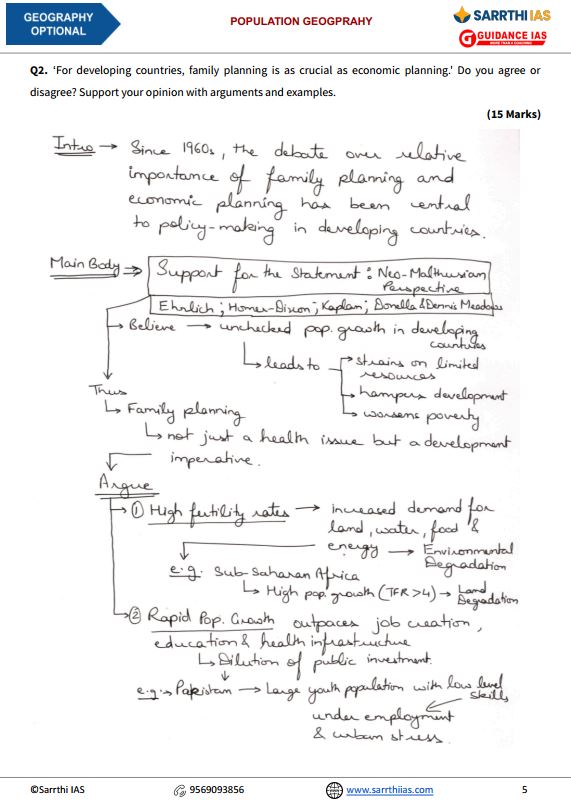 GEOGRAPHY
OPTIONAL
POPULATION GEOGPRAHY
SARRTHI IAS
GUIDANCE IAS
Q2. 'For developing countries, family planning is as crucial as economic planning.' Do you agree or
disagree? Support your opinion with arguments and examples.
(15 Marks)
Intro → Since 1960s, the debate over relative
importance of family planning and
economic planning has been central
to policy-making in developing countries.
Main Body ⇒ Support for the Statement : Neo-Malthusian
Perspective
Ehrlich ; Homer-Dixon ; Kaplan ; Donella & Dennis Meadows
→ Believe → unchecked pop. growth in developing
countries
↳ leads to → strains on limited
resources
→ hampers development
→ worsens poverty
Thus
↳ Family planning
↳ not just a health issue but a development
imperative.
Argue
→ ① High fertility rates → increased demand for
land, water, food &
energy → Environmental
Degradation
e.g. Sub-Saharan Africa
↳ High pop. growth (TFR >4) → Land
Degradation
→ ② Rapid Pop. Growth outpaces job creation,
education & health infrastructure
↳ Dilution of public investment.
e.g. → Pakistan → Large youth population with low level
skills
under employment
& urban stress.
©Sarrthi IAS
9569093856
www.sarrthiias.com
5